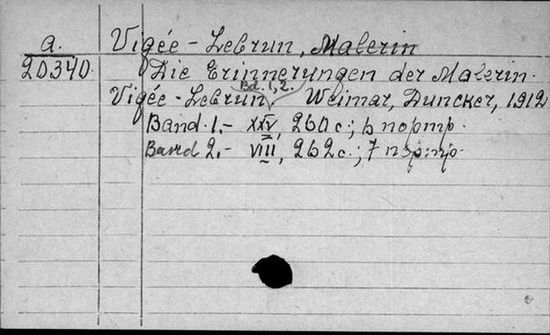 a. Vigée-Lebrun, Malerin
20340. Die Erinnerungen der Malerin
Bd. 1, 2.
Vigée-Lebrun. Weimar, Duncker, 1912
Band 1.- XXV, 260 с.; 6 портр.
Band 2.- VIII, 262 с.; 7 портр.